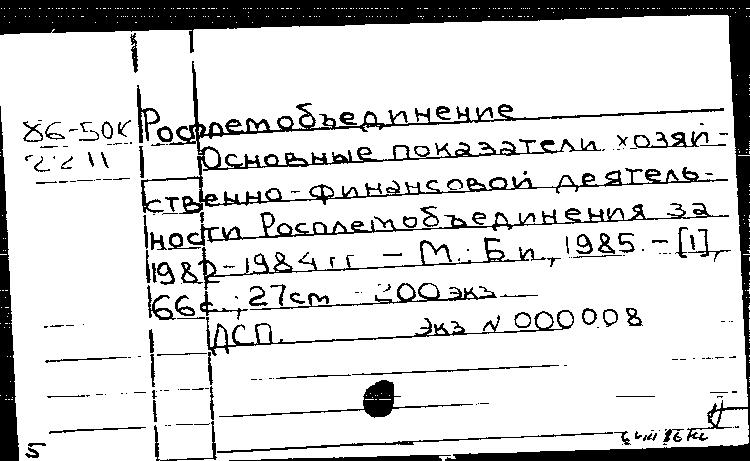 86-50К Росплемобъединение
2211 Основные показатели хозяй-
ственно-финансовой деятель-
ности Росплемобъединения за
1982-1984 гг. - М.: Б.и., 1985. - [1],
66 с.; 27 см 200 экз.
ДСП. Экз N 000008
5